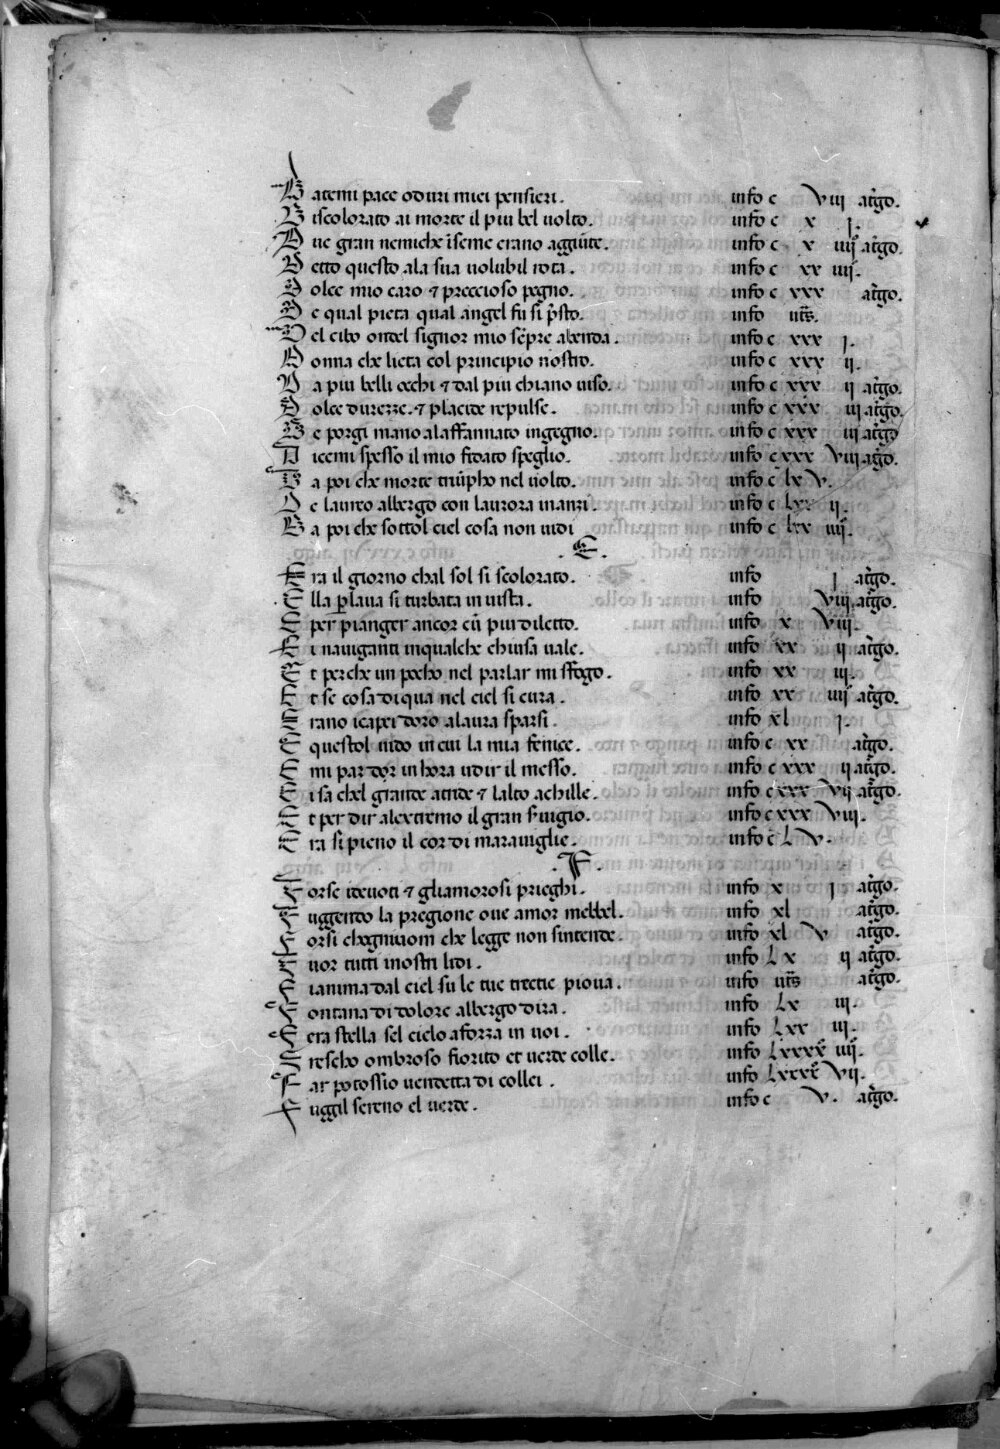 Datemi pace o duri miei pensieri. info c viii atego.
Discolorato ai morte il piu bel uolto. info c x i.
Due gran nemiche iseme erano aggiute. info c x iiii atego.
Detto questo ala sua uolubil rota. info c xx iiii.
Dolce mio caro & preccioso pegno. info c xxx atego.
De qual pieta qual angel fu si psto. info uts.
Del cibo ondel signor mio sepre abenda. info c xxx i.
Donna che lieta col principio nostro. info c xxx ii.
Da piu belli occhi & dal piu chiano uiso. info c xxx ii atego.
Dolce durezze. & placide repulse. info c xxx iii atego.
De porgi mano alaffannato ingegno. info c xxx iii atego
Dicemi spesso il mio fidato speglio. info c xxx viii atego.
Da poi che morte triupho nel uolto. info c lx v.
De laureo albergo con laurora inanzi. info c lxx ii.
Da poi che sottol ciel cosa non uidi info c lxx iiii.
. E .
Era il giorno chal sol si scolorato. info i atego.
Ella parlaua si turbata in uista. info viii atego.
E per pianger ancor cu piu diletto. info x viii.
Ei nauiganti inqualche chiusa ualle. info xx ii atego.
Et perche un pocho nel parlar mi sfogo. info xx iii.
Et se cosa di qua nel ciel si cura. info xx iiii atego.
Erano icapei doro alaura sparsi. info xl i.
E questol nido in cui la mia fenice. info c xx atego.
E mi par dor in hora udir il messo. info c xxx ii atego.
Ei sa chel grande atride & lalto achille. info c xxx vii atego.
Et per dir alextremo il gran seruigio. info c xxx viii.
Era si pieno il cor di marauiglie. info c l v.
. F .
Forse ideuoti & gliamorosi prieghi. info x i atego.
Fuggendo la pregione oue amor mebbel. info xl atego.
Forsi chogniuom che legge non sintende. info xl v atego.
Fuor tutti inostri lidi. info l x ii atego.
Fianima dal ciel su le tue trecie pioua. info uts atego.
Fontana di dolore albergo dira. info lx iii.
Fera stella sel cielo a forza in noi. info lxx iii.
Frescho ombroso fiorito et uerde colle. info lxxxx iiii.
Far potossio uendetta di collei. info lxxxx vii.
Fuggil sereno el uerde. info c v. atego.